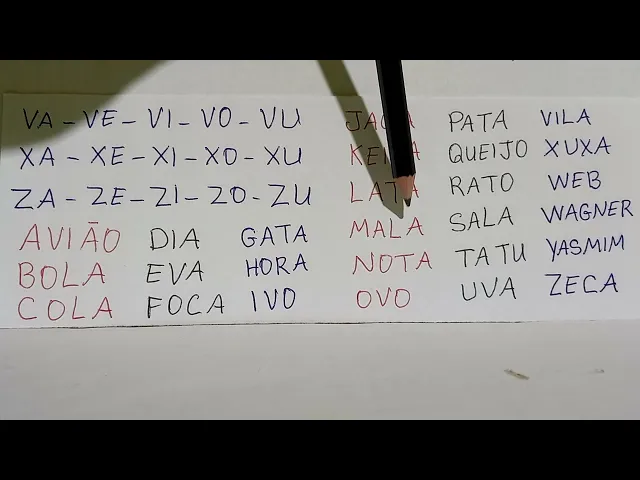 VA - VE - VI - VO - VU
XA - XE - XI - XO - XU
ZA - ZE - ZI - ZO - ZU
AVIÃO DIA GATA
BOLA EVA HORA
COLA FOCA IVO
LATA
MALA
NOTA
OVO
PATA VILA
QUEIJO XUXA
RATO WEB
SALA WAGNER
TATU YASMIM
UVA ZECA